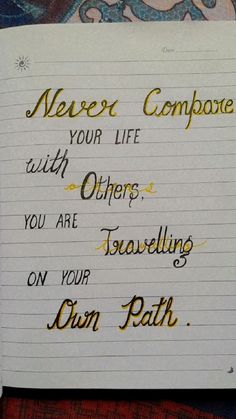 Date
Never Compare
YOUR LIFE
with
Others,
YOU ARE
Travelling
ON YOUR
Own Path.